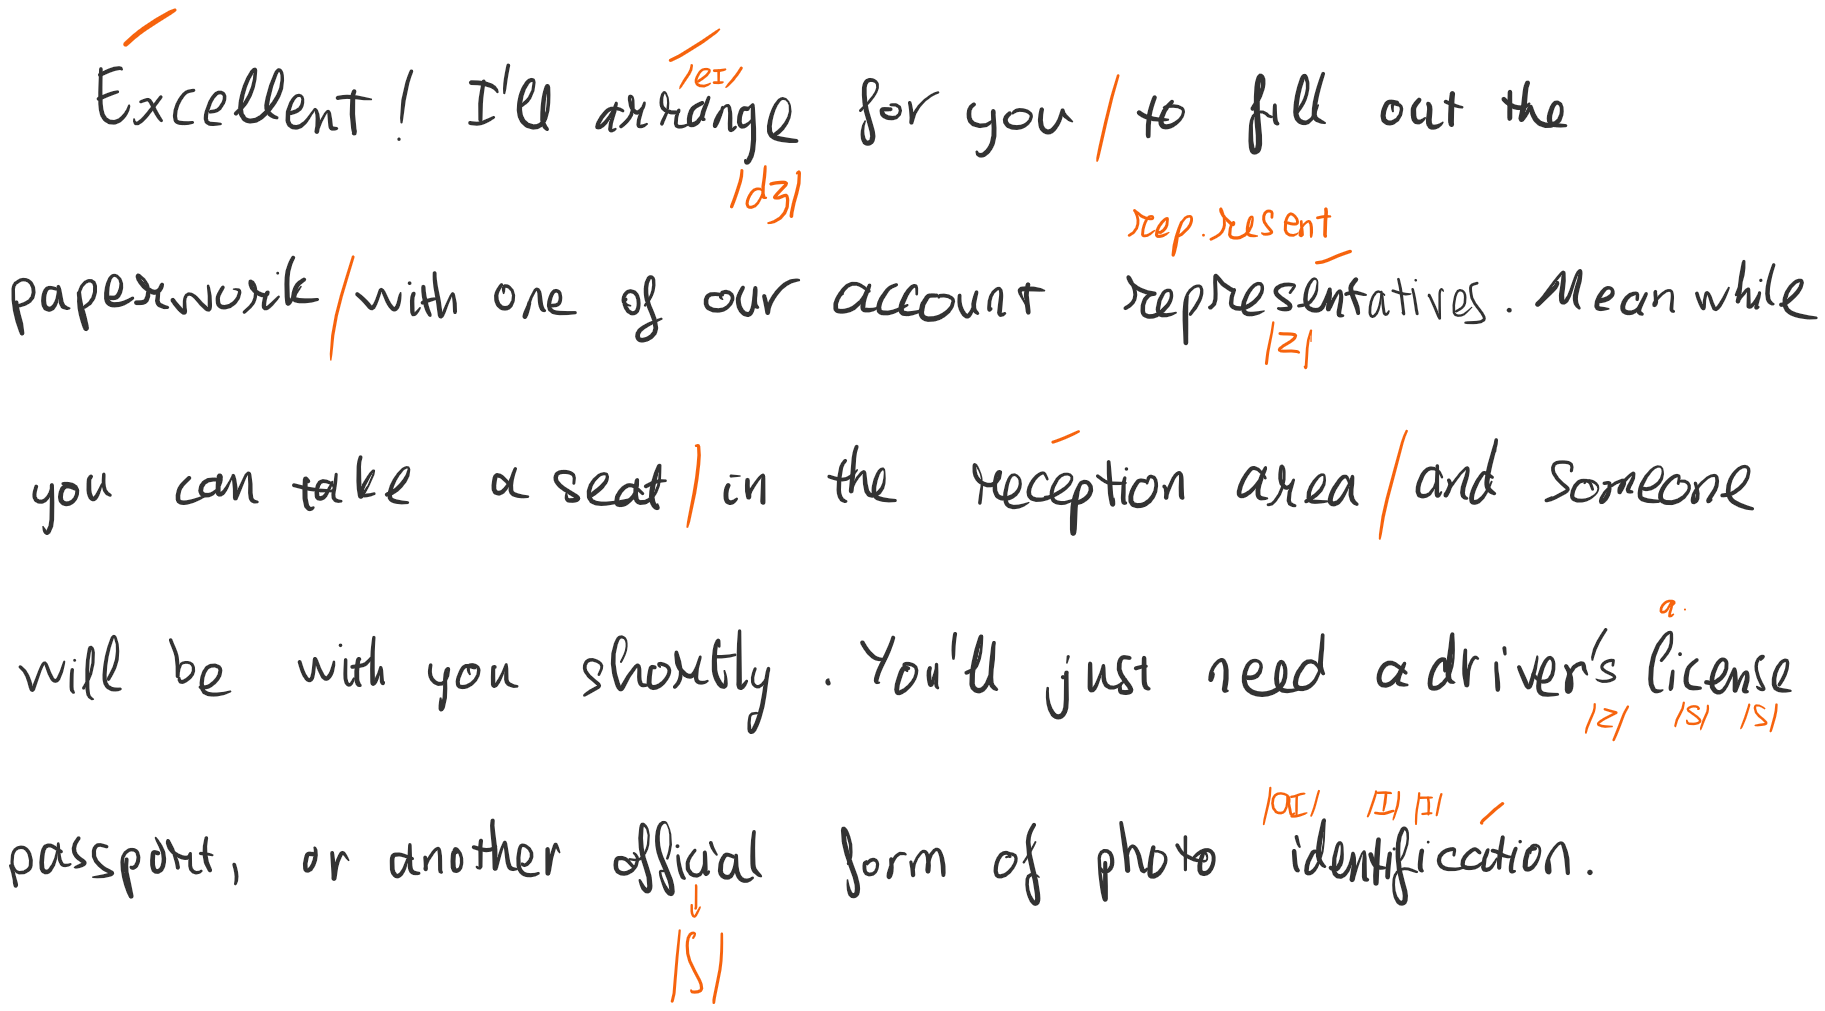 Excellent! I'll arrange for you / to fill out the
/eɪ/
/dʒ/
rep.resent
paperwork / with one of our account representatives. Meanwhile
/z/
you can take a seat / in the reception area / and someone
a.
will be with you shortly. You'll just need a driver's license
/z/ /s/ /s/
/aɪ/ /ɪ/ /ɪ/
passport, or another official form of photo identification.
↓
/ʃ/